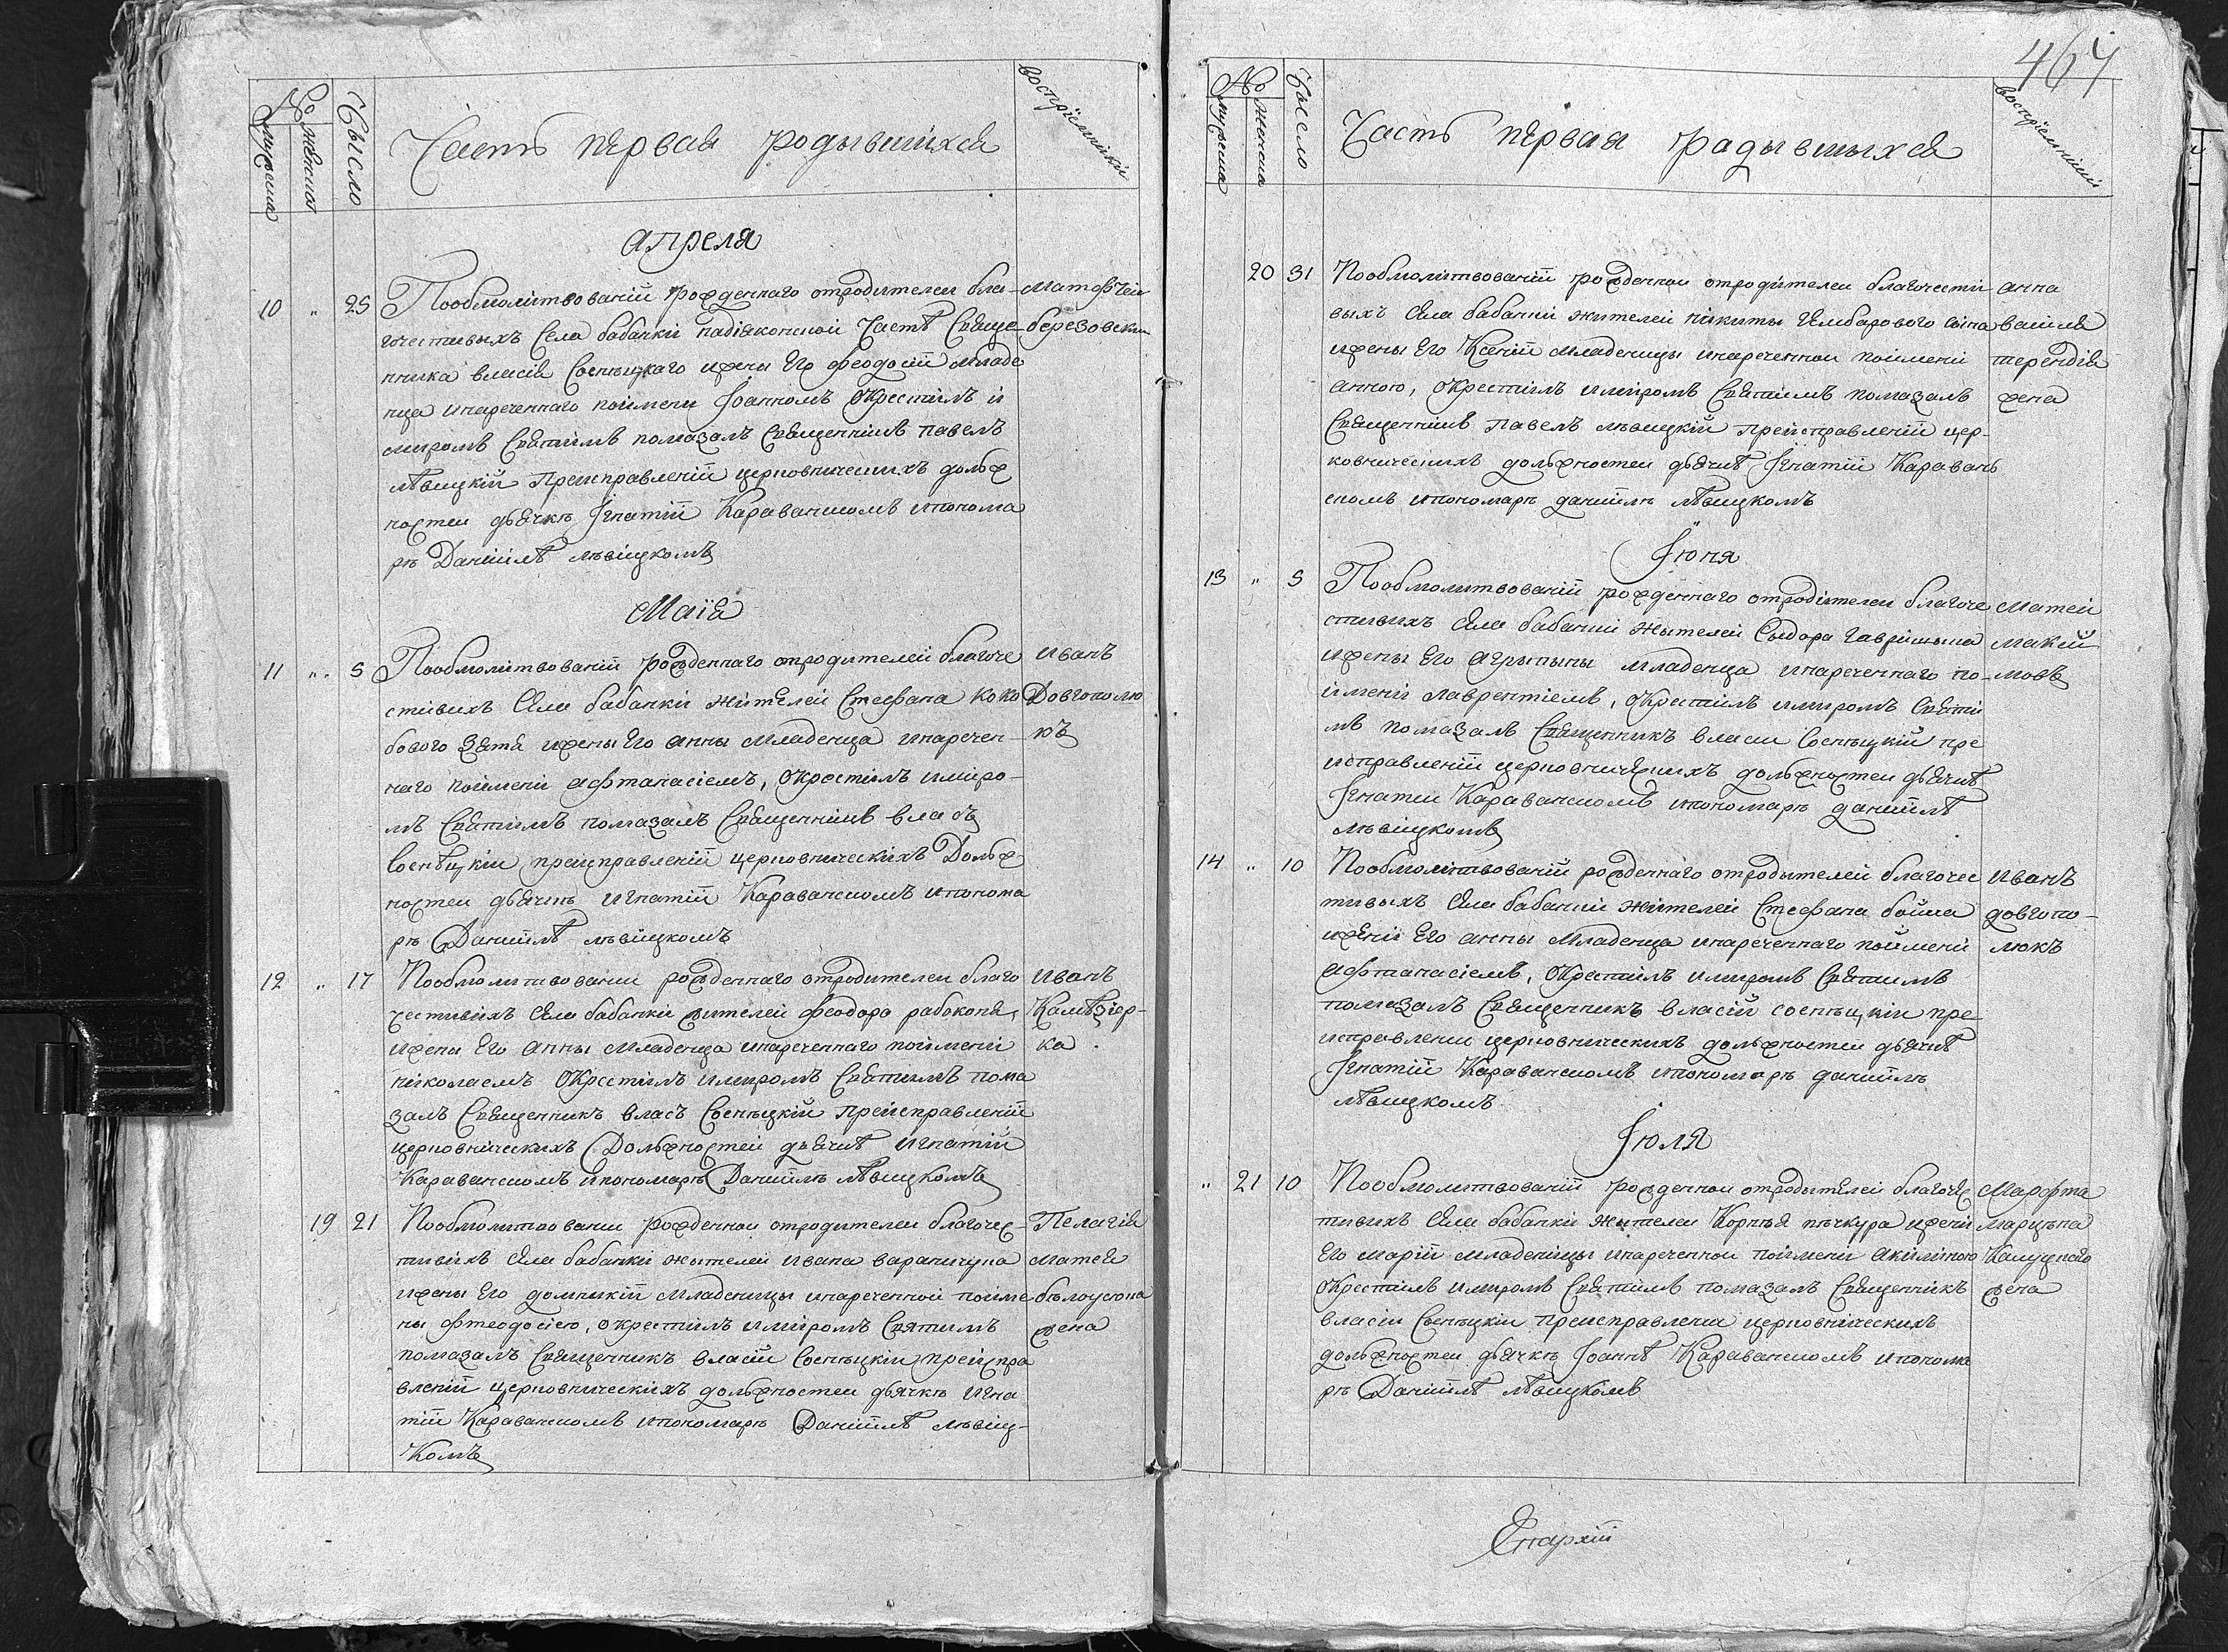 №
мужеска
женска
Чысло
Часть первая родывшихся
воспріемникі
апреля
10 " 25 Пообмолітвованій рожденнаго отродителеи бла- Матфеи
гочестивыхъ Села бабанкі надіяконской Частѣ Свяще- березовскі
нника власія Соенецкаго ижены Его феодосіи Младе
нца инареченнаго поімени Іоанномъ Окрестилъ и
миромъ Святимъ помазалъ Священникъ павелъ
лѣвицкій Преисправленій церковническихъ долж
ностеи дьячкѣ Ігнатій Караванскомъ ипонома
рѣ Даніилѣ лѣвіцкомъ
Маія
11 " 5 Пообмолітвованій рожденнаго отродителей благоче Иванъ
стівихъ Села бабанкі жітелей Стефана коко Довгополю
бового зятя ижены Его анны Младенца инаречен- къ
наго поімені афтанасіемъ, Окрестілъ иміро-
мъ Святимъ помазалъ Священникъ власъ
Соенецкіи преисправленій церковническіхъ Долж
ностеи дьячкѣ Игнатій Караванскомъ ипонома
рѣ Даниілѣ лѣвіцкомъ
12 " 17 Пообмолитвованіи рожденнаго отродителеи благо Иванъ
честивіхъ Села бабанкі жителей феодора рабоконя,
ижены Его Анны Младенца инареченнаго поімені ка
ніколаемъ Окрестілъ имиромъ Святимъ пома
залъ Священникъ власъ Соенецкій преисправленій
церковніческихъ Должностей дьячкѣ Игнатій
Караванскомъ ипономарѣ Даниілѣ лѣвицкомъ
19 21 Пообмолитвованіи рожденнои отродителеи благочес- Пелагія
тивіхъ Села бабанкі жытелеи Ивана Матея
ижены Его домникій Младеницы инареченной поіме- бѣлоусова
ны фтеодосіею, окрестилъ иміромъ Святимъ жена
помазалъ Священникъ власіи Соенецкіи преиспра
вленій церковническихъ должностеи дьячкѣ Игна
тій Караванскомъ ипономарѣ Даниілѣ лѣвиц-
комъ
464
№
мужеска
женска
Чысло
Часть первая радывшыхся
воспріемнікі
20 31 Пообмолітвованій рожденнои отродителеи благочести анна
выхъ Села бабанкі жителей нікиты сина василя
ижены Его Ксеній Младеницы инареченнои поімені терендія
анною, окрестилъ имиромъ Святимъ помазалъ жена
Священникъ павелъ лѣвицкій преисправленій цер-
ковническихъ должностеи дьячкѣ Ігнатій Караван
скомъ ипономарѣ даниілѣ лѣвицкомъ
Іюня
13 " 5 Пообмолитвованій рожденнаго отродителеи благоче Матей
стивихъ Села бабанкі жытелей Сыдора макей
ижены Его агрыпыны младенца инареченнаго по- мовъ
імені лаврентіемъ, окрестилъ имиромъ Святі
мъ помазалъ Священникъ власи Соенецкій пре
исправленій церковническихъ должностеи дьячкѣ
Ігнатеи Караванскомъ ипономарѣ даниілѣ
лѣвіцкомъ
14 " 10 Пообмолитвованій рожденнаго отродытелей благочес Иванъ
тивыхъ Села бабанкі жителей Стефана довгопо-
ижені Его анны Младенца инареченнаго поймені люкъ
афтанасіемъ, Окрестилъ имиромъ Святимъ
помазалъ Священникъ власій соенецкіи пре
исправлении церковническихъ должностеи дьячкѣ
Ігнатій Караванскомъ ипономарѣ даниілѣ
лѣвицкомъ
Іюля
" 21 10 Пообмолитвованій рожденнои отродытелей благочес Марфта
тивихъ Села бабанкі жителеи Корнѣя пѣчкура ижени марцына
Его марій младеницы инареченнои поімени акилиною
Окрестілъ имиромъ Святимъ помазалъ Священнікъ жена
власіи Соенецкіи преисправлении церковніческихъ
должностеи дьячкѣ Іоаннѣ Караванскомъ ипонома
рѣ Даніилѣ лѣвицкомъ
Епархіи